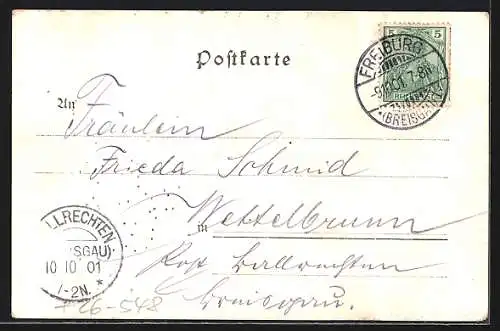 Postkarte
5 5
FREIBURG
-9.10.01.7-8N
(BREISGAU)
An
Fräulein
Frieda Schmid
in Wettelbrunn
Post Ballrechten
Breisgau.
LLRECHTEN
SGAU)
10 10 01
1-2N. *
F26-548